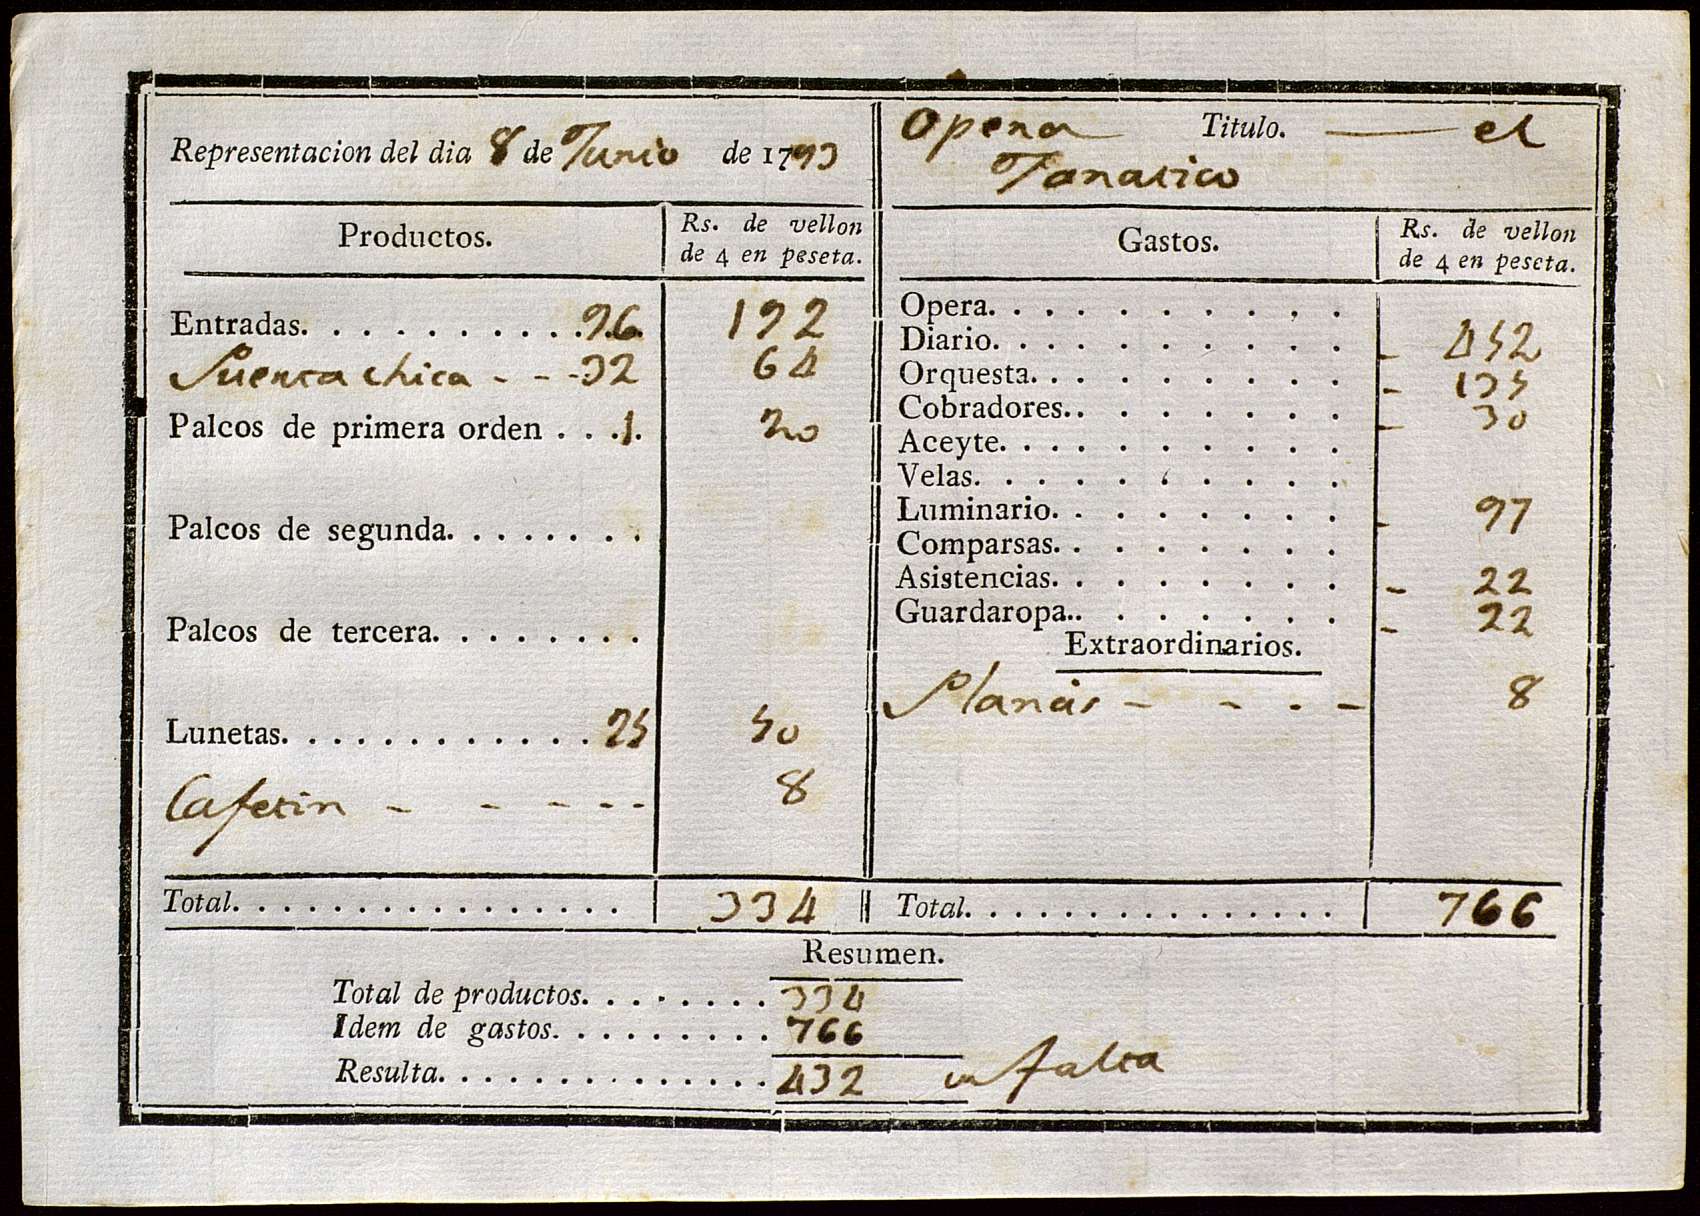 Representacion del dia 8 de Junio de 1793
Opera Titulo. el
Fanatico
Productos. Rs. de vellon
de 4 en peseta.
Entradas. . . . . . . . . . . . 96 192
Puerta chica - - - 32 64
Palcos de primera orden . . . 1. 20
Palcos de segunda. . . . . . . .
Palcos de tercera. . . . . . . .
Lunetas. . . . . . . . . . . . . 25 50
Cafetin - - - - - 8
Total. . . . . . . . . . . . . . . . 334
Gastos. Rs. de vellon
de 4 en peseta.
Opera. . . . . . . . . . .
Diario. . . . . . . . . . . 452
Orquesta. . . . . . . . . 135
Cobradores.. . . . . . . . 30
Aceyte. . . . . . . . . . .
Velas. . . . . . . . . . .
Luminario. . . . . . . . 97
Comparsas. . . . . . . .
Asistencias. . . . . . . . 22
Guardaropa.. . . . . . . 22
Extraordinarios.
- - - - 8
Total. . . . . . . . . . . . . . . . 766
Resumen.
Total de productos. . . . . . . . 334
Idem de gastos. . . . . . . . . 766
Resulta. . . . . . . . . . . . . . 432 en falta